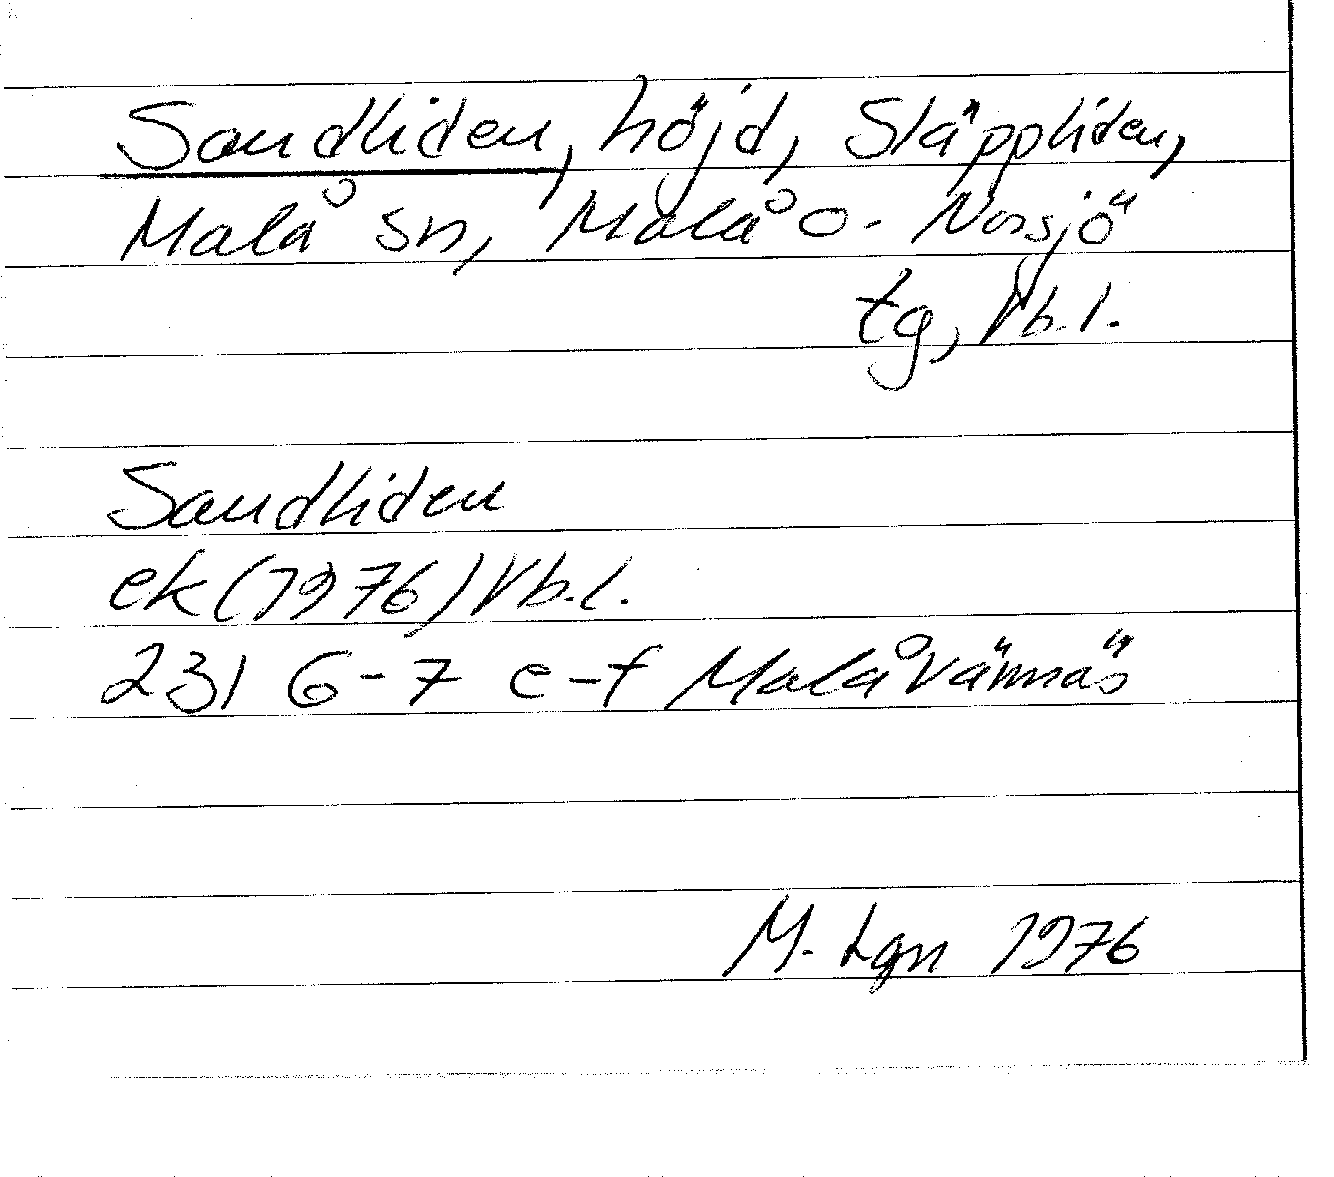 Sandliden, höjd, Släppliden,
Malå sn, Malå o. Norsjö
tg, Vb.l.
Sandliden
ek (1976) Vb.l.
231 6-7 e-f Malåvännäs
M. Lgn 1976